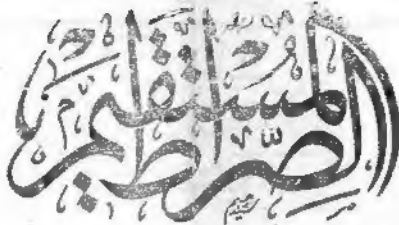 الصراط
المستقیم